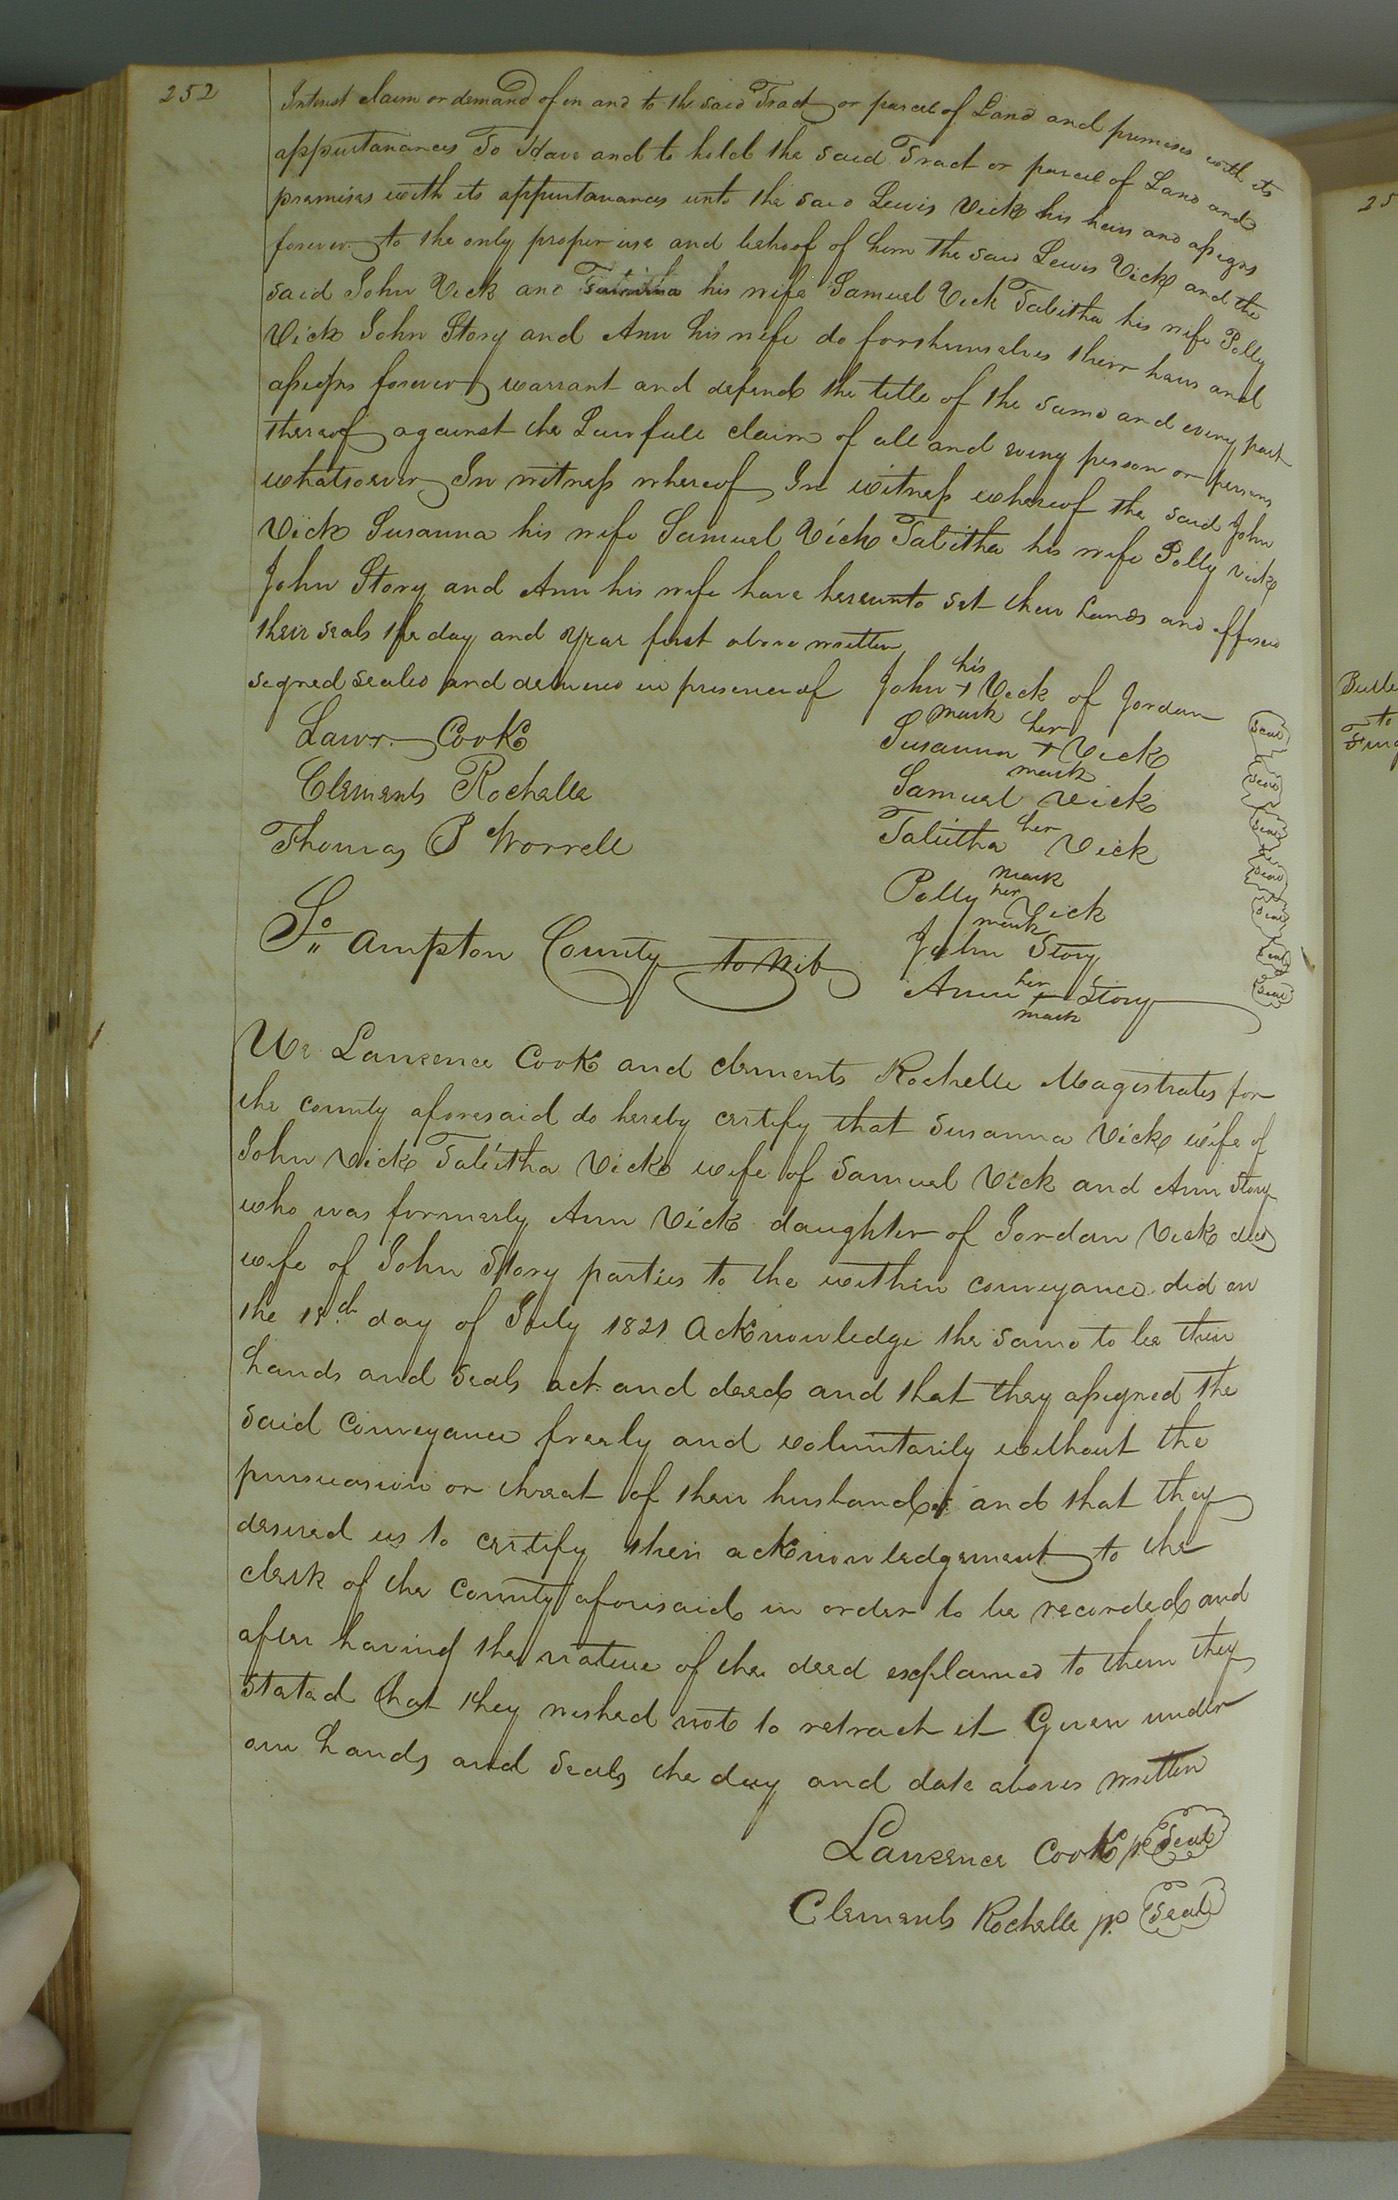 252
Interest claim or demand of in and to the said Tract or parcel of Land and premises with its
appurtanances To Have and to hold the said Tract or parcel of Land and
premises with its appurtanances unto the said Lewis Vick his heirs and assigns
forever to the only proper use and behoof of him the said Lewis Vick and the
said John Vick and his wife Samuel Vick Tabitha his wife Polly
Vick John Story and Ann his wife do for themselves their heirs and
assigns forever warrant and defend the title of the same and every part
thereof against the Lawfull claim of all and every person or persons
whatsoever In witness whereof In witness whereof the said John
Vick Susanna his wife Samuel Vick Tabitha his wife Polly Vick
John Story and Ann his wife have hereunto set their hands and affixed
their seals the day and year first above written
signed sealed and delivered in presence of John his + mark Vick of Jordan Seal
Lawr. Cook
Susanna her + mark Vick Seal
Clements Rochelle
Samuel Vick Seal
Thomas P Worrell
Tabitha her mark Vick Seal
Polly her mark Vick Seal
John Story Seal
So,, ampton County to Wit
Ann her + mark Story Seal
We Lawrence Cook and Clements Rochelle Magistrates for
the county aforesaid do hereby certify that Susanna Vick wife of
John Vick Tabitha Vick wife of Samuel Vick and Ann Story
who was formerly Ann Vick daughter of Jordan Vick decd
wife of John Story parties to the within conveyance did on
the 18th day of July 1821 acknowledge the same to be their
hands and seals act and deed and that they assigned the
said conveyance freely and voluntarily without the
pursuasion or threat of their husbands and that they
desired us to certify their acknowledgement to the
clerk of the county aforesaid in order to be recorded and
after having the nature of the deed explained to them they
stated that they wished not to retract it Given under
our hands and seals the day and date above written
Lawrence Cook JP Seal
Clements Rochelle JP Seal
25
to